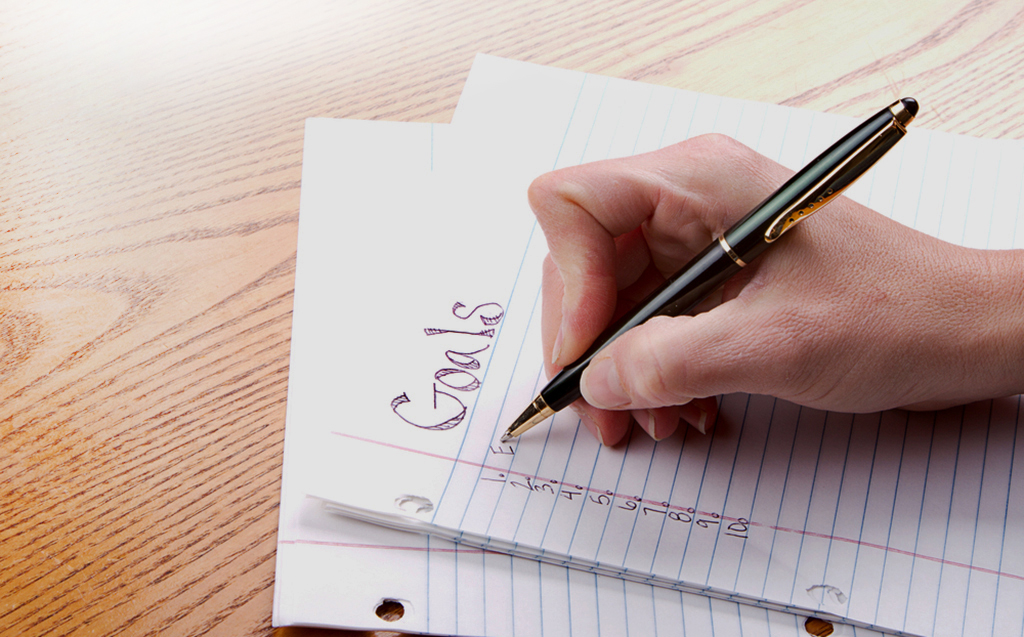 Goals
1. E
2.
3.
4.
5.
6.
7.
8.
9.
10.